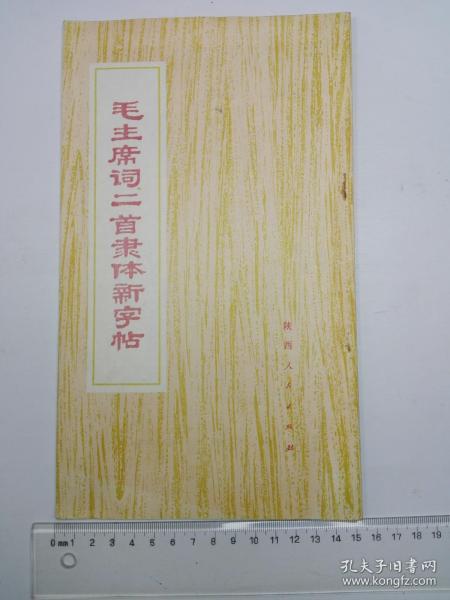 毛主席词二首隶体新字帖
陕西人民出版社
0 mm 1 2 3 4 5 6 7 8 9 10 11 12 13 14 15 16 17 18 19
孔夫子旧书网
www.kongfz.com